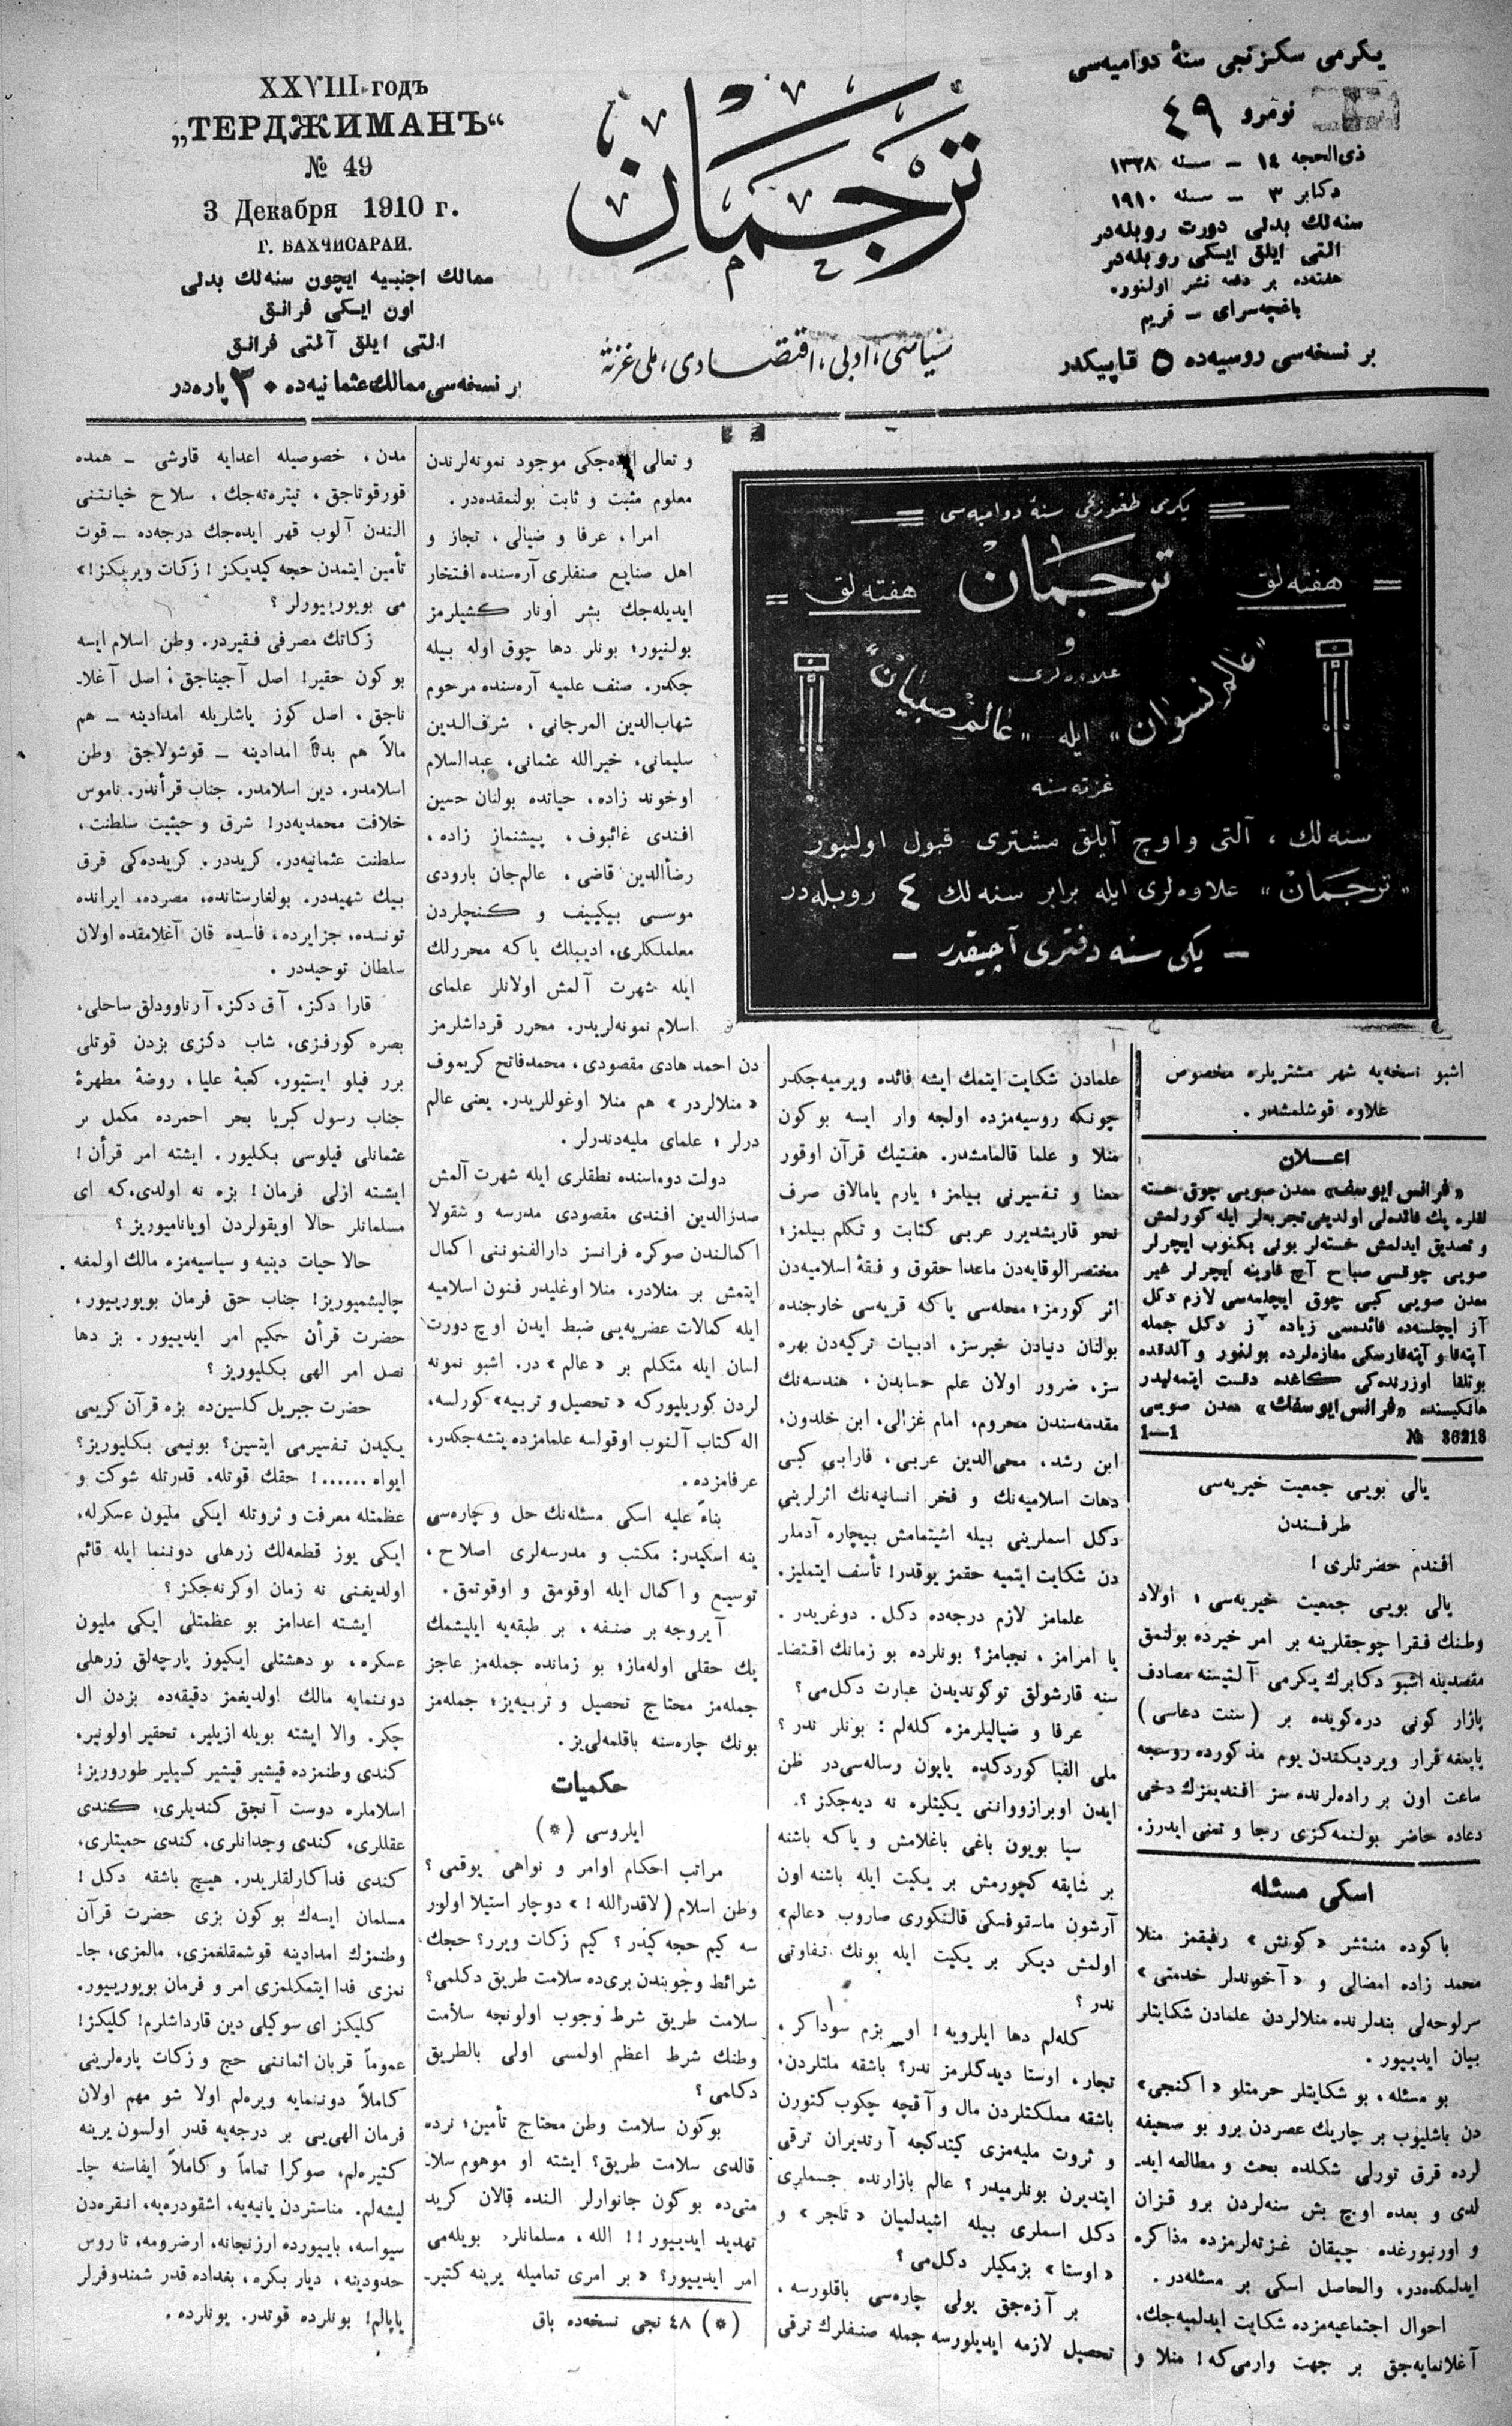 یكرمی سكزنجی سنهٔ دوامیه‌سی
نومرو ٤٩
ذی‌الحجه ١٤ — سنه ١٣٢٨
دكابر ٣ — سنه ١٩١٠
سنه‌لك بدلی دورت روبله‌در
التی ایلق ایكی روبله‌در
هفته‌ده بر دفعه نشر اولنور.
باغچه‌سرای — قریم
بر نسخه‌سی روسیه‌ده ٥ قاپیكدر
ترجمان
سیاسی، ادبی، اقتصادی، ملی غزته
XXVIII годъ
„ТЕРДЖИМАНЪ“
№ 49
3 Декабря 1910 г.
Г. БАХЧИСАРАЙ.
ممالك اجنبیه ایچون سنه‌لك بدلی
اون ایكی فرانق
التی ایلق آلتی فرانق
بر نسخه‌سی ممالك عثمانیه‌ده ٣٠ پاره‌در
یكرمی طقوزنجی سنهٔ دوامیه‌سی
هفته‌لق ترجمان هفته‌لق
و
علاوه‌لری
«عالم نسوان» ایله «عالم صبیان»
غزته‌سنه
سنه‌لك ، آلتی و اوچ آیلق مشتری قبول اولنیور
«ترجمان» علاوه‌لری ایله برابر سنه‌لك ٤ روبله‌در
— یكی سنه دفتری آچیقدر —
اشبو نسخه‌یه شهر مشتریلره مخصوص
علاوه قوشلمشدر .
اعـلان
«فرانس ایوسف» معدن صویی چوق خسته
لقلره پك فائده‌لی اولدیغی تجربه‌لر ایله كورلمش
و تصدیق ایدلمش خسته‌لر بونی بكنوب ایچرلر
صویی چوقسی صباح آچ قارینه ایچرلر غیر
معدن صویی كبی چوق ایچلمه‌سی لازم دكل
آز ایچلسه‌ده فائده‌سی زیاده دكل جمله
آپته‌قا و آپته‌قارسكی مغازه‌لرده بولنور و آلدقده
بوتلقا اوزرنده‌كی كاغده دقت ایتمه‌لیدر
«فرانس ایوسفك» معدن صویی
№ 36213 1—1
یالی بویی جمعیت خیریه‌سی
طرفندن
افندم حضرتلری !
یالی بویی جمعیت خیریه‌سی ؛ اولاد
وطنك فقرا چوجقلرینه بر امر خیرده بولنمق
مقصدینه اشبو دكابرك یكرمی آلتیسنه مصادف
پازار كونی دره‌كویده بر (سنت دعاسی)
یاپمغه قرار ویردیكندن یوم مذكورده روسجه
ساعت اون بر راده‌لرنده سز افندیمزك دخی
دعاده حاضر بولنمه‌كزی رجا و تمنی ایدرز.
اسكی مسئله
باكوده منتشر «كونش» رفیقمز منلا
محمد زاده امضالی و «آخوندلر خدمتی»
سرلوحه‌لی بندلرنده منلالردن علمادن شكایتلر
بیان ایدییور .
بو مسئله ، بو شكایتلر حرمتلو «اكنجی»
دن باشلیوب بر چاریك عصردن برو بو صحیفه
لرده قرق تورلی شكلده بحث و مطالعه اید-
لدی و بعده اوچ بش سنه‌لردن برو قزان
و اورنبورغده چیقان غزته‌لرمزده مذاكره
ایدلمكده‌در، والحاصل اسكی بر مسئله‌در .
احوال اجتماعیه‌مزده شكایت ایدلمیه‌جك،
آغلانمایه‌جق بر جهت وارمی‌كه ! منلا و
علمادن شكایت ایتمك ایشه فائده ویرمیه‌جكدر
چونكه روسیه‌مزده اولجه وار ایسه بوكون
منلا و علما قالمامشدر. هفتیك قرآن اوقور
معنا و تفسیرنی بیلمز ؛ یارم یامالاق صرف
نحو قاریشدیرر عربی كتابت و تكلم بیلمز ؛
مختصرالوقایه‌دن ماعدا حقوق و فقهٔ اسلامیه‌دن
اثر كورمز ؛ محله‌سی یاكه قریه‌سی خارجنده
بولنان دنیادن خبرسز، ادبیات تركیه‌دن بهره
سز، ضرور اولان علم حسابدن، هندسه‌نك
مقدمه‌سندن محروم، امام غزالی، ابن خلدون،
ابن رشد، محی‌الدین عربی، فارابی كبی
دهات اسلامیه‌نك و فخر انسانیه‌نك اثرلرینی
دكل اسملرینی بیله اشیتمامش بیچاره آدملر
دن شكایت ایتمیه حقمز یوقدر ! تأسف ایتملیز.
علمامز لازم درجه‌ده دكل . دوغریدر .
یا امرامز ، نجبامز؟ بونلرده بو زمانك اقتضا-
سنه قارشولق توكوندیدن عبارت دكل‌می ؟
عرفا و ضیالیلرمزه كله‌لم : بونلر ندر ؟
ملی الفبا كوردكده یاپون رساله‌سی‌در ظن
ایدن اوبرازوواننی یكیتلره نه دیه‌جكز ؟.
سیا بویون باغی باغلامش و یاكه باشنه
بر شاپقه كچورمش بر یكیت ایله باشنه اون
آرشون قالنكوری صاروب «عالم»
اولمش دیكر بر یكیت ایله بونك تفاوتی
ندر ؟
كله‌لم دها ایلرویه ! او بزم سوداكر ،
تجار ، اوستا دیدكلرمز ندر؟ باشقه ملتلردن،
باشقه مملكتلردن مال و آقچه چكوب كتورن
و ثروت ملیه‌مزی كیتدكجه آرتدیران ترقی
ایتدیرن بونلرمیدر؟ عالم بازارنده جسملری
دكل اسملری بیله اشیدلمیان «تاجر» و
«اوستا» بزمكیلر دكل‌می ؟
بر آزه‌جق یولی چاره‌سی باقلورسه ،
تحصیل لازمه ایدیلورسه جمله صنفلرك ترقی
و تعالی ایده‌جكی موجود نمونه‌لرندن
معلوم مثبت و ثابت بولنمقده‌در .
امرا ، عرفا و ضیالی ، تجار و
اهل صنایع صنفلری آره‌سنده افتخار
ایدیله‌جك بشر اونار كشیلرمز
بولنیور؛ بونلر دها چوق اوله بیله
جكدر. صنف علمیه آره‌سنده مرحوم
شهاب‌الدین المرجانی ، شرف‌الدین
سلیمانی، خیرالله عثمانی، عبدالسلام
اوخوند زاده، حیاتده بولنان حسین
افندی غائبوف ، پیشنماز زاده ،
رضأالدین قاضی ، عالم‌جان بارودی
موسی بیكییف و كنجلردن
معلملكلری، ادیبلك یاكه محررلك
ایله شهرت آلمش اولانلر علمای
اسلام نمونه‌لریدر. محرر قرداشلرمز
دن احمد هادی مقصودی ، محمدفاتح كریموف
«منلالردر» هم منلا اوغوللریدر. یعنی عالم
درلر ؛ علمای ملیه‌دندرلر .
دولت دوماسنده نطقلری ایله شهرت آلمش
صدرالدین افندی مقصودی مدرسه و شقولا
اكمالندن صوكره فرانسز دارالفنوننی اكمال
ایتمش بر منلادر، منلا اوغلیدر فنون اسلامیه
ایله كمالات عضریه‌یی ضبط ایدن اوچ دورت
لسان ایله متكلم بر «عالم» در. اشبو نمونه
لردن كوریلیوركه «تحصیل و تربیه» كورلسه،
اله كتاب آلنوب اوقولسه علمامزده یتشه‌جكدر،
عرفامزده .
بناءً علیه اسكی مسئله‌نك حل و چاره‌سی
ینه اسكیدر: مكتب و مدرسه‌لری اصلاح ،
توسیع و اكمال ایله اوقومق و اوقوتمق .
آیروجه بر صنفه ، بر طبقه‌یه ایلیشمك
پك حقلی اوله‌ماز؛ بو زمانده جمله‌مز عاجز
جمله‌مز محتاج تحصیل و تربیه‌یز؛ جمله‌مز
بونك چاره‌سنه باقلمه‌لی‌یز .
حكمیات
ایلروسی (*)
مراتب احكام اوامر و نواهی یوقمی ؟
وطن اسلام (لاقدرالله ! ) دوچار استیلا اولور
سه كیم حجه كیدر ؟ كیم زكات ویرر؟ حجك
شرائط وجوبندن بری‌ده سلامت طریق دكلمی؟
سلامت طریق شرط وجوب اولونجه سلامت
وطنك شرط اعظم اولمسی اولی بالطریق
دكلمی ؟
بوكون سلامت وطن محتاج تأمین؛ نرده
قالدی سلامت طریق؟ ایشته او موهوم سلا-
متی‌ده بوكون جانوارلر النده قالان كرید
تهدید ایدییور !! الله ، مسلمانلره بویله‌می
امر ایدییور؟ « بر امری تمامیله یرینه كتیر-
(*) ٤٨ نجی نسخه‌ده باق
مدن ، خصوصیله اعدایه قارشی — همده
قورقوتاجق ، تیتره‌ته‌جك ، سلاح خیانتنی
الندن آلوب قهر ایده‌جك درجه‌ده — قوت
تأمین ایتمدن حجه كیدیكز ! زكات ویریكز !»
می بویورییورلر ؟
زكاتك مصرفی فقیردر. وطن اسلام ایسه
بوكون حقیر! اصل آجیناجق ؛ اصل آغلا-
ناجق ، اصل كوز یاشلریله امدادینه — هم
مالاً هم بدناً امدادینه — قوشولاجق وطن
اسلامدر. دین اسلامدر. جناب قرأندر. ناموس
خلافت محمدیه‌در! شرق و حیثیت سلطنت ،
سلطنت عثمانیه‌در. كریددر. كریدده‌كی قرق
بیك شهیددر. بولغارستانده، مصرده، ایرانده
تونسده، جزایرده، فاسده قان آغلامقده اولان
سلطان توحیددر .
قارا دكز، آق دكز، آرناوودلق ساحلی،
بصره كورفزی، شاب دكزی بزدن قوتلی
برر فیلو ایستیور، كعبهٔ علیا، روضهٔ مطهرهٔ
جناب رسول كبریا بحر احمرده مكمل بر
عثمانلی فیلوسی بكلیور . ایشته امر قرأن !
ایشته ازلی فرمان ! بزه نه اولدی،كه ای
مسلمانلر حالا اویقولردن اویانامیوریز ؟
حالا حیات دینیه و سیاسیه‌مزه مالك اولمغه
چالیشمیوریز! جناب حق فرمان بویورییور،
حضرت قرآن حكیم امر ایدییور. بز دها
نصل امر الهی بكلیوریز ؟
حضرت جبریل كلسین‌ده بزه قرآن كریمی
یكیدن تفسیرمی ایتسین؟ بونیمی بكلیوریز؟
ایواه ......! حقك قوتله، قدرتله شوكت و
عظمتله معرفت و ثروتله ایكی ملیون عسكرله،
ایكی یوز قطعه‌لك زرهلی دوننما ایله قائم
اولدیغنی نه زمان اوكرنه‌جكز ؟
ایشته اعدامز بو عظمتلی ایكی ملیون
عسكره ، بو دهشتلی ایكیوز پارچه‌لق زرهلی
دوننمایه مالك اولدیغمز دقیقه‌ده بزدن ال
چكر. والا ایشته بویله ازیلیر، تحقیر اولونیر،
كندی وطنمزده قیشیر قیشیر كیبلیر طوروریز!
اسلاملره دوست آنجق كندیلری، كندی
عقللری، كندی وجدانلری، كندی حمیتلری،
كندی فداكارلقلریدر. هیچ باشقه دكل !
مسلمان ایسه‌ك بوكون بزی حضرت قرآن
وطنمزك امدادینه قوشمقلغمزی، مالمزی، جا-
نمزی فدا ایتمكلمزی امر و فرمان بویورییور.
كلیكز ای سوكیلی دین قارداشلرم! كلیكز!
عموماً قربان اثماننی حج و زكات پاره‌لرینی
كاملاً دوننمایه ویره‌لم اولا شو مهم اولان
فرمان الهی‌یی بر درجه‌یه قدر اولسون یرینه
كتیره‌لم، صوكرا تماماً و كاملاً ایفاسنه چا-
لیشه‌لم. مناستردن یانیه‌یه، اشقودره‌یه، انقره‌دن
سیواسه، بایبورده ارزنجانه، ارضرومه، تا روس
حدودینه ، دیار بكره، بغداده قدر شمندوفرلر
یاپالم! بونلرده قوتدر. بونلرده .